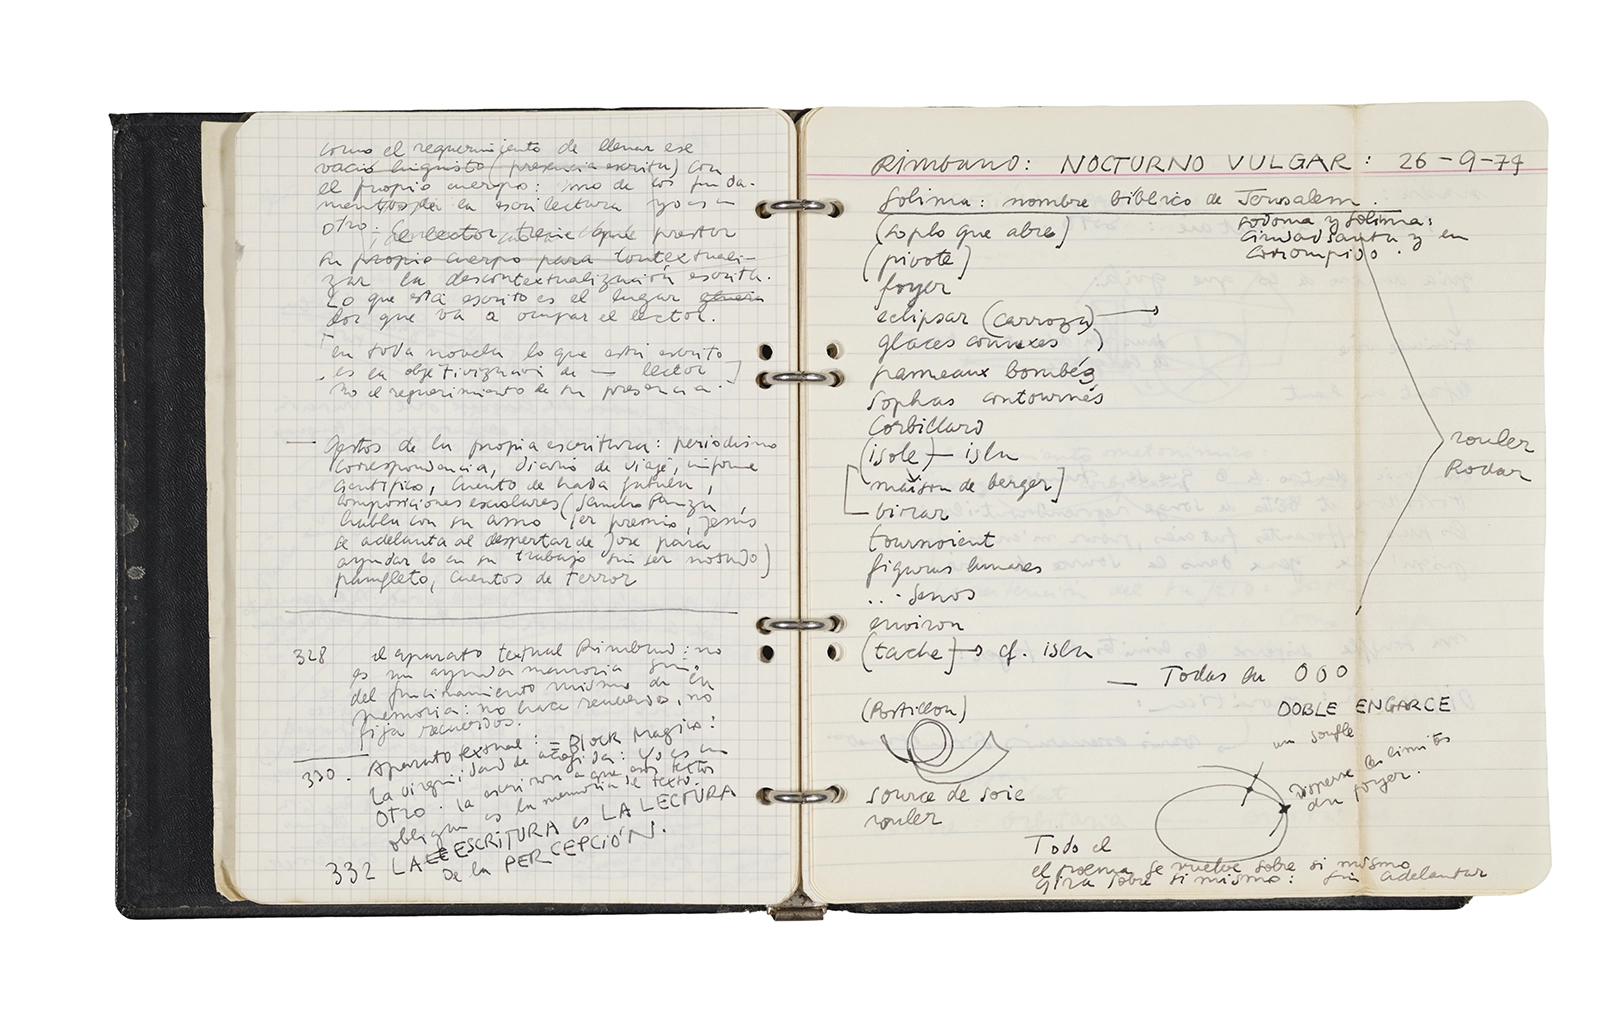 como el requerimiento de llenar ese
vacio linguisto (presencia escrita) con
el propio cuerpo: uno de los funda-
mentos de la escrilectura yo es un
otro. el lector tiene que prestar
su propio cuerpo para contextuali-
zar la descontextualización escrita.
Lo que está escrito es el lugar
dos que va a ocupar el lector.
en toda novela lo que está escrito
es la objetivización de — lector
no el requerimiento de su presencia.
— Gestos de la propia escritura: periodismo
correspondencia, diario de viaje, informe
científico, cuento de hada
composiciones escolares (Sancho Panza
habla con su amo 1er premio, Jesús
se adelanta al despertar de José para
ayudarlo en su trabajo sin ser notado)
panfleto, cuentos de terror
328 el aparato textual Rimbaud: no
es un ayuda memoria sino
del funcionamiento mismo de la
memoria: no hace recuerdos, no
fija recuerdos.
330. Aparato textual: = Block Magico:
La virginidad de acogida: Yo es un
OTRO. La escritura a que esos textos
obligan es la memoria del texto.
332 LA ESCRITURA es LA LECTURA
De la PERCEPCIÓN.
Rimbaud: NOCTURNO VULGAR: 26-9-74
Solima: nombre bíblico de Jerusalem.
(soplo que abre)
Sodoma y Solima:
ciudad santa y
corrompido.
(pivote)
foyer
eclipsar (carroza) →
glaces convexes)
panneaux bombés
sophas contournés
Corbillard
(isole) — isla
maison de berger]
birrar
rouler
Rodar
tournoient
figuras lunares
... Senos
environ
(tache) → cf. isla
— Todas en OOO
(Postillon)
DOBLE ENGARCE
un soufle
disperse les limites
du foyer.
source de soie
rouler
Todo el
el poema se vuelve sobre si mismo
gira sobre si mismo: sin adelantar